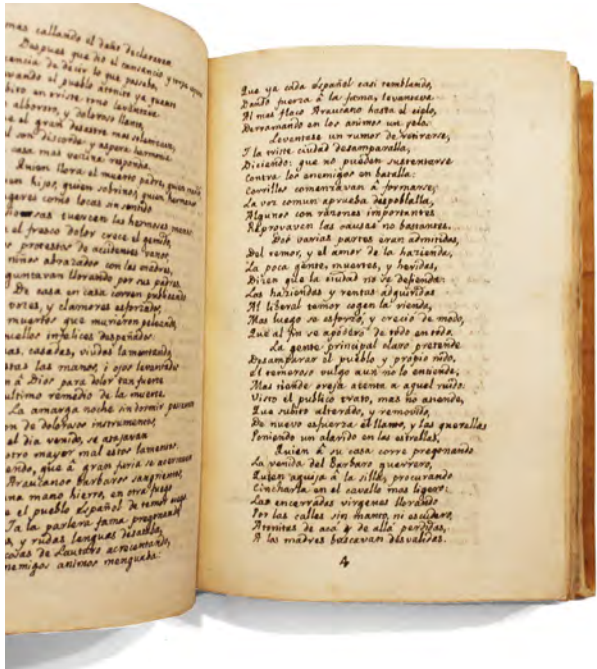 mas callando el daño declararon
Despues que dió el cansancio, y torpe
encia de decir lo que passaba,
vando el pueblo atonito ya
bito en triste tono levantava
alboroto, y doloroso llanto,
e el gran desastre mas solemniza,
al son discorde y aspera harmonia
casa mas vecina respondia.
Quien llora el muerto padre, quien marido
uien hijos, quien sobrinos, quien hermanos
ugeres como locas sin sentido
tuercen las hermosas manos
el fresco dolor crece el gemido,
protestos de accidentes vanos,
niños abrazados con las madres,
guntavan llorando por sus padres.
De casa en casa corren publicando
vozes, y clamores esforzados,
muertos que murieron peleando,
uellos infelices despeñados
as, casadas, viudas lamentando
stas las manos, i ojos levantados
n á Dios para dolor tan fuerte
ultimo remedio de la muerte.
La amarga noche sin dormir
n de dolorosos instrumentos,
el dia venido, se atajavan
otro mayor mal estos lamentos.
endo, que á gran furia se acercavan
Araucanos barbaros sangrientos,
una mano hierro, en otra fuego
e el pueblo Español de temor
Ya la parlera fama pregonando
s, y rudas lenguas desataba,
cosas de Lautaro acrecentando,
nemigos animos menguaba:
Que ya cada Español casi temblando,
Dando fuerza á la fama, levantava
Al mas flaco Araucano hasta el cielo,
Derramando en los animos un yelo.
Levantase un rumor de retirarse,
I la triste ciudad desamparalla,
Diciendo: que no pueden sustentarse
Contra los enemigos en batalla:
Corrillos comenzavan á formarse,
La voz comun aprueba despoblalla,
Algunos con razones importantes
Reprovavan las causas no bastantes.
Dos varias partes eran admitidas,
Del temor, y el amor de la hazienda,
La poca gente, muertes, y heridas,
Dizen que la ciudad no se defienda:
Las haziendas y rentas adquiridas
Al liberal temor cogen la rienda,
Mas luego se esforzo, y creció de modo,
Que al fin se apoderó de todo en todo.
La gente principal claro pretende
Desamparar el pueblo y propio nido,
el temeroso vulgo aun no lo entiende,
Mas tiende oreja atenta a aquel ruido:
Visto el publico trato, mas no atiende,
Que subito alterado, y removido,
De nuevo esfuerza el llanto, y las querellas
Poniendo un alarido en las estrellas,
Quien á su casa corre pregonando
La venida del Barbaro guerrero,
Quien aguija á la silla, procurando
Cincharla en el cavallo mas ligero:
Las encerradas virgenes llorando
Por las calles sin manto, ni escudero,
Atonitas de acá y de allá perdidas,
A las madres buscavan desvalidas.
4